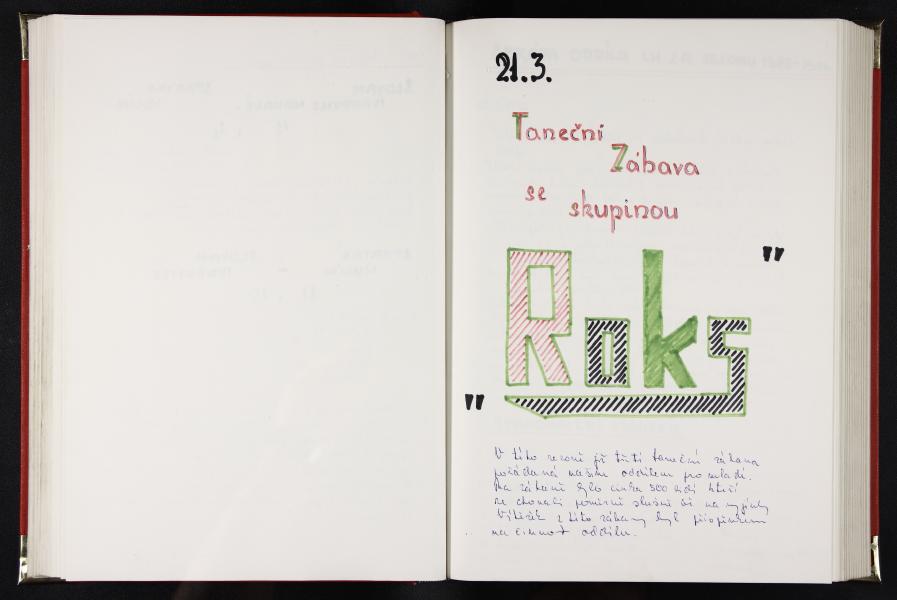 21.3.
Taneční
Zábava
se skupinou
"Roks"
V této sezoně již třetí taneční zábava
pořádaná naším oddílem pro mládí.
Na zábavě bylo cirka 500 lidí kteří
se chovali poměrně slušně až na vyjímky
Výtěžek z této zábavy byl příspěvkem
na činnost oddílu.